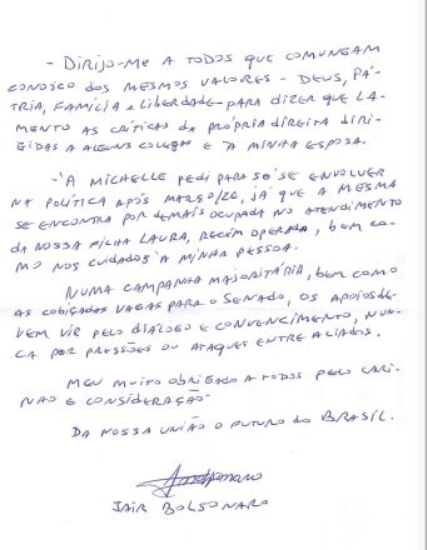 - DIRIJO-ME A TODOS QUE COMUNGAM
CONOSCO DOS MESMOS VALORES - DEUS, PÁ-
TRIA, FAMÍLIA e LIBERDADE - PARA DIZER QUE LA-
MENTO AS CRÍTICAS DA PRÓPRIA DIREITA DIRI-
GIDAS A ALGUNS COLEGAS E À MINHA ESPOSA.
- À MICHELLE PEDI PARA SÓ SE ENVOLVER
NA POLÍTICA APÓS MARÇO/26, JÁ QUE A MESMA
SE ENCONTRA POR DEMAIS OCUPADA NO ATENDIMENTO
DA NOSSA FILHA LAURA, RECÉM OPERADA, BEM CO-
MO NOS CUIDADOS À MINHA PESSOA.
NUMA CAMPANHA MAJORITÁRIA, BEM COMO
AS COBIÇADAS VAGAS PARA O SENADO, OS APOIOS DE-
VEM VIR PELO DIÁLOGO E CONVENCIMENTO, NUN-
CA POR PRESSÕES OU ATAQUES ENTRE ALIADOS.
MEU MUITO OBRIGADO A TODOS PELO CARI-
NHO E CONSIDERAÇÃO.
DA NOSSA UNIÃO O FUTURO DO BRASIL.
JAIR BOLSONARO